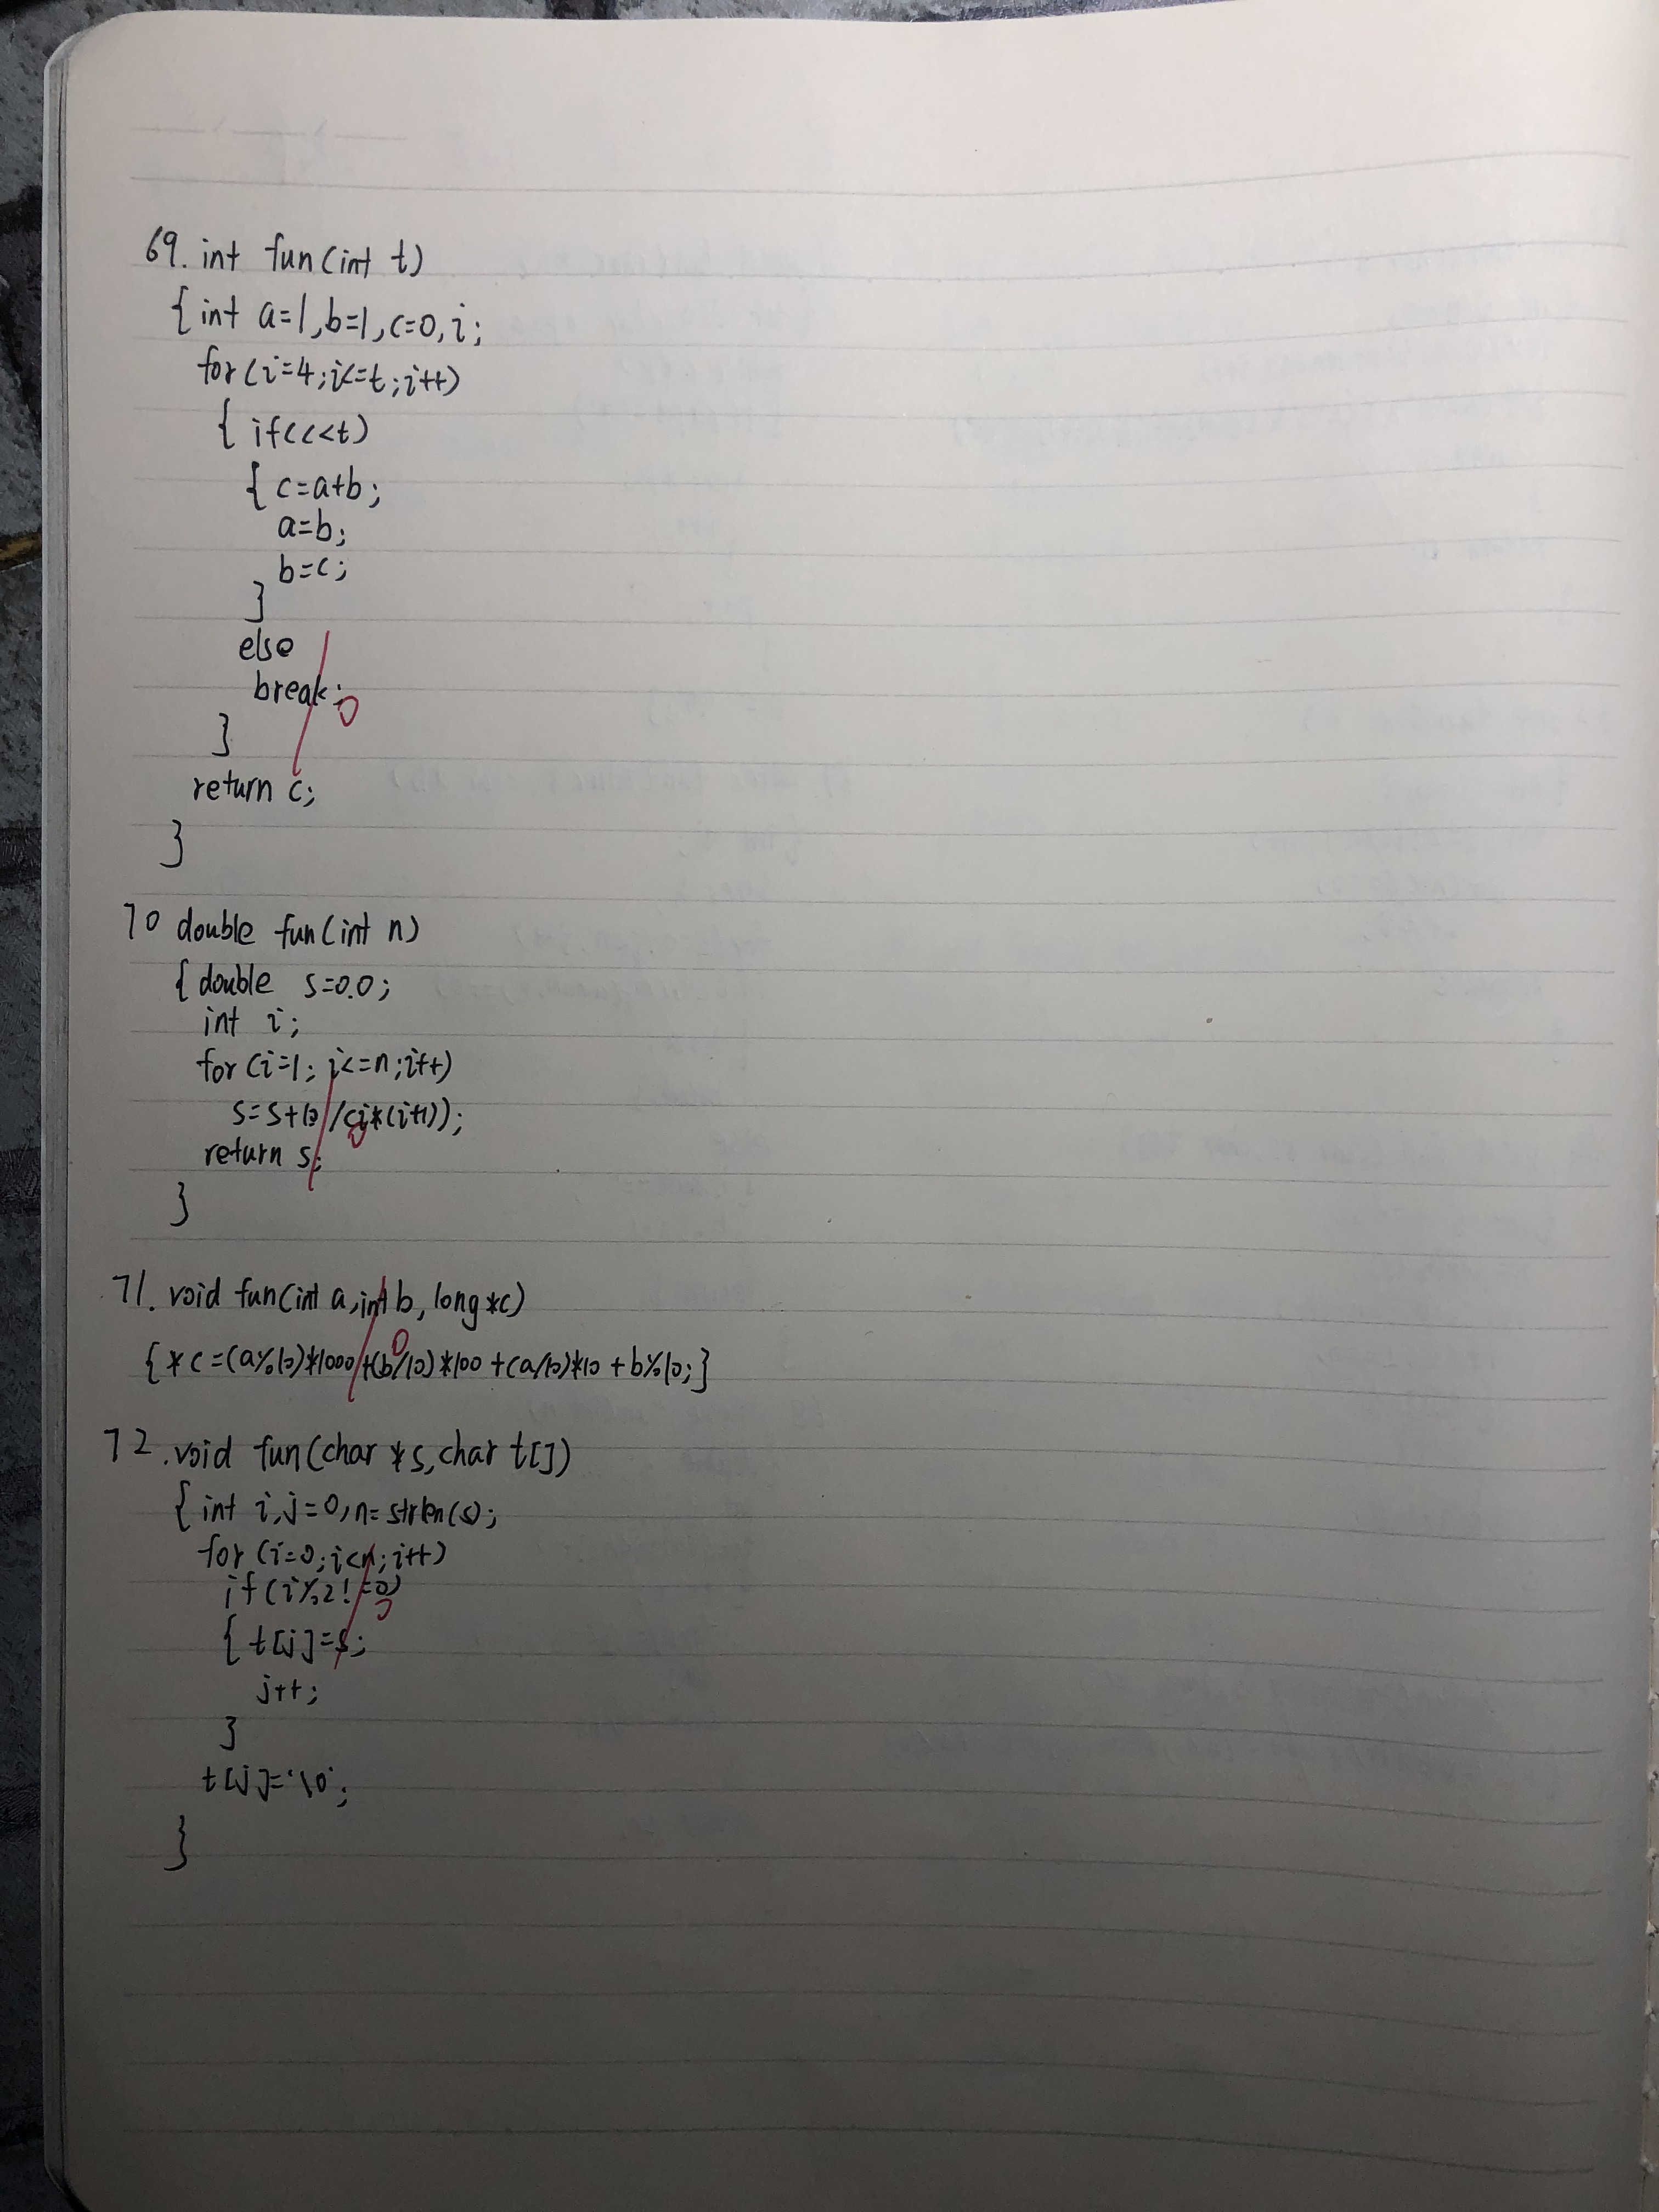 69. int fun(int t)
{int a=1,b=1,c=0,i;
for(i=4;i<=t;i++)
{ if(c<t)
{ c=a+b;
a=b;
b=c;
}
else
break;
}
return c;
}
70 double fun(int n)
{double s=0.0;
int i;
for(i=1;i<=n;i++)
s=s+1.0/(i*(i+1));
return s;
}
71. void fun(int a,int b,long*c)
{*c=(a%10)*1000+(b/10)*100+(a/10)*10+b%10;}
72.void fun(char *s,char t[])
{int i,j=0,n=strlen(s);
for(i=0;i<n;i++)
if(i%2!=0)
{ t[j]=s;
j++;
}
t[j]='\0';
}